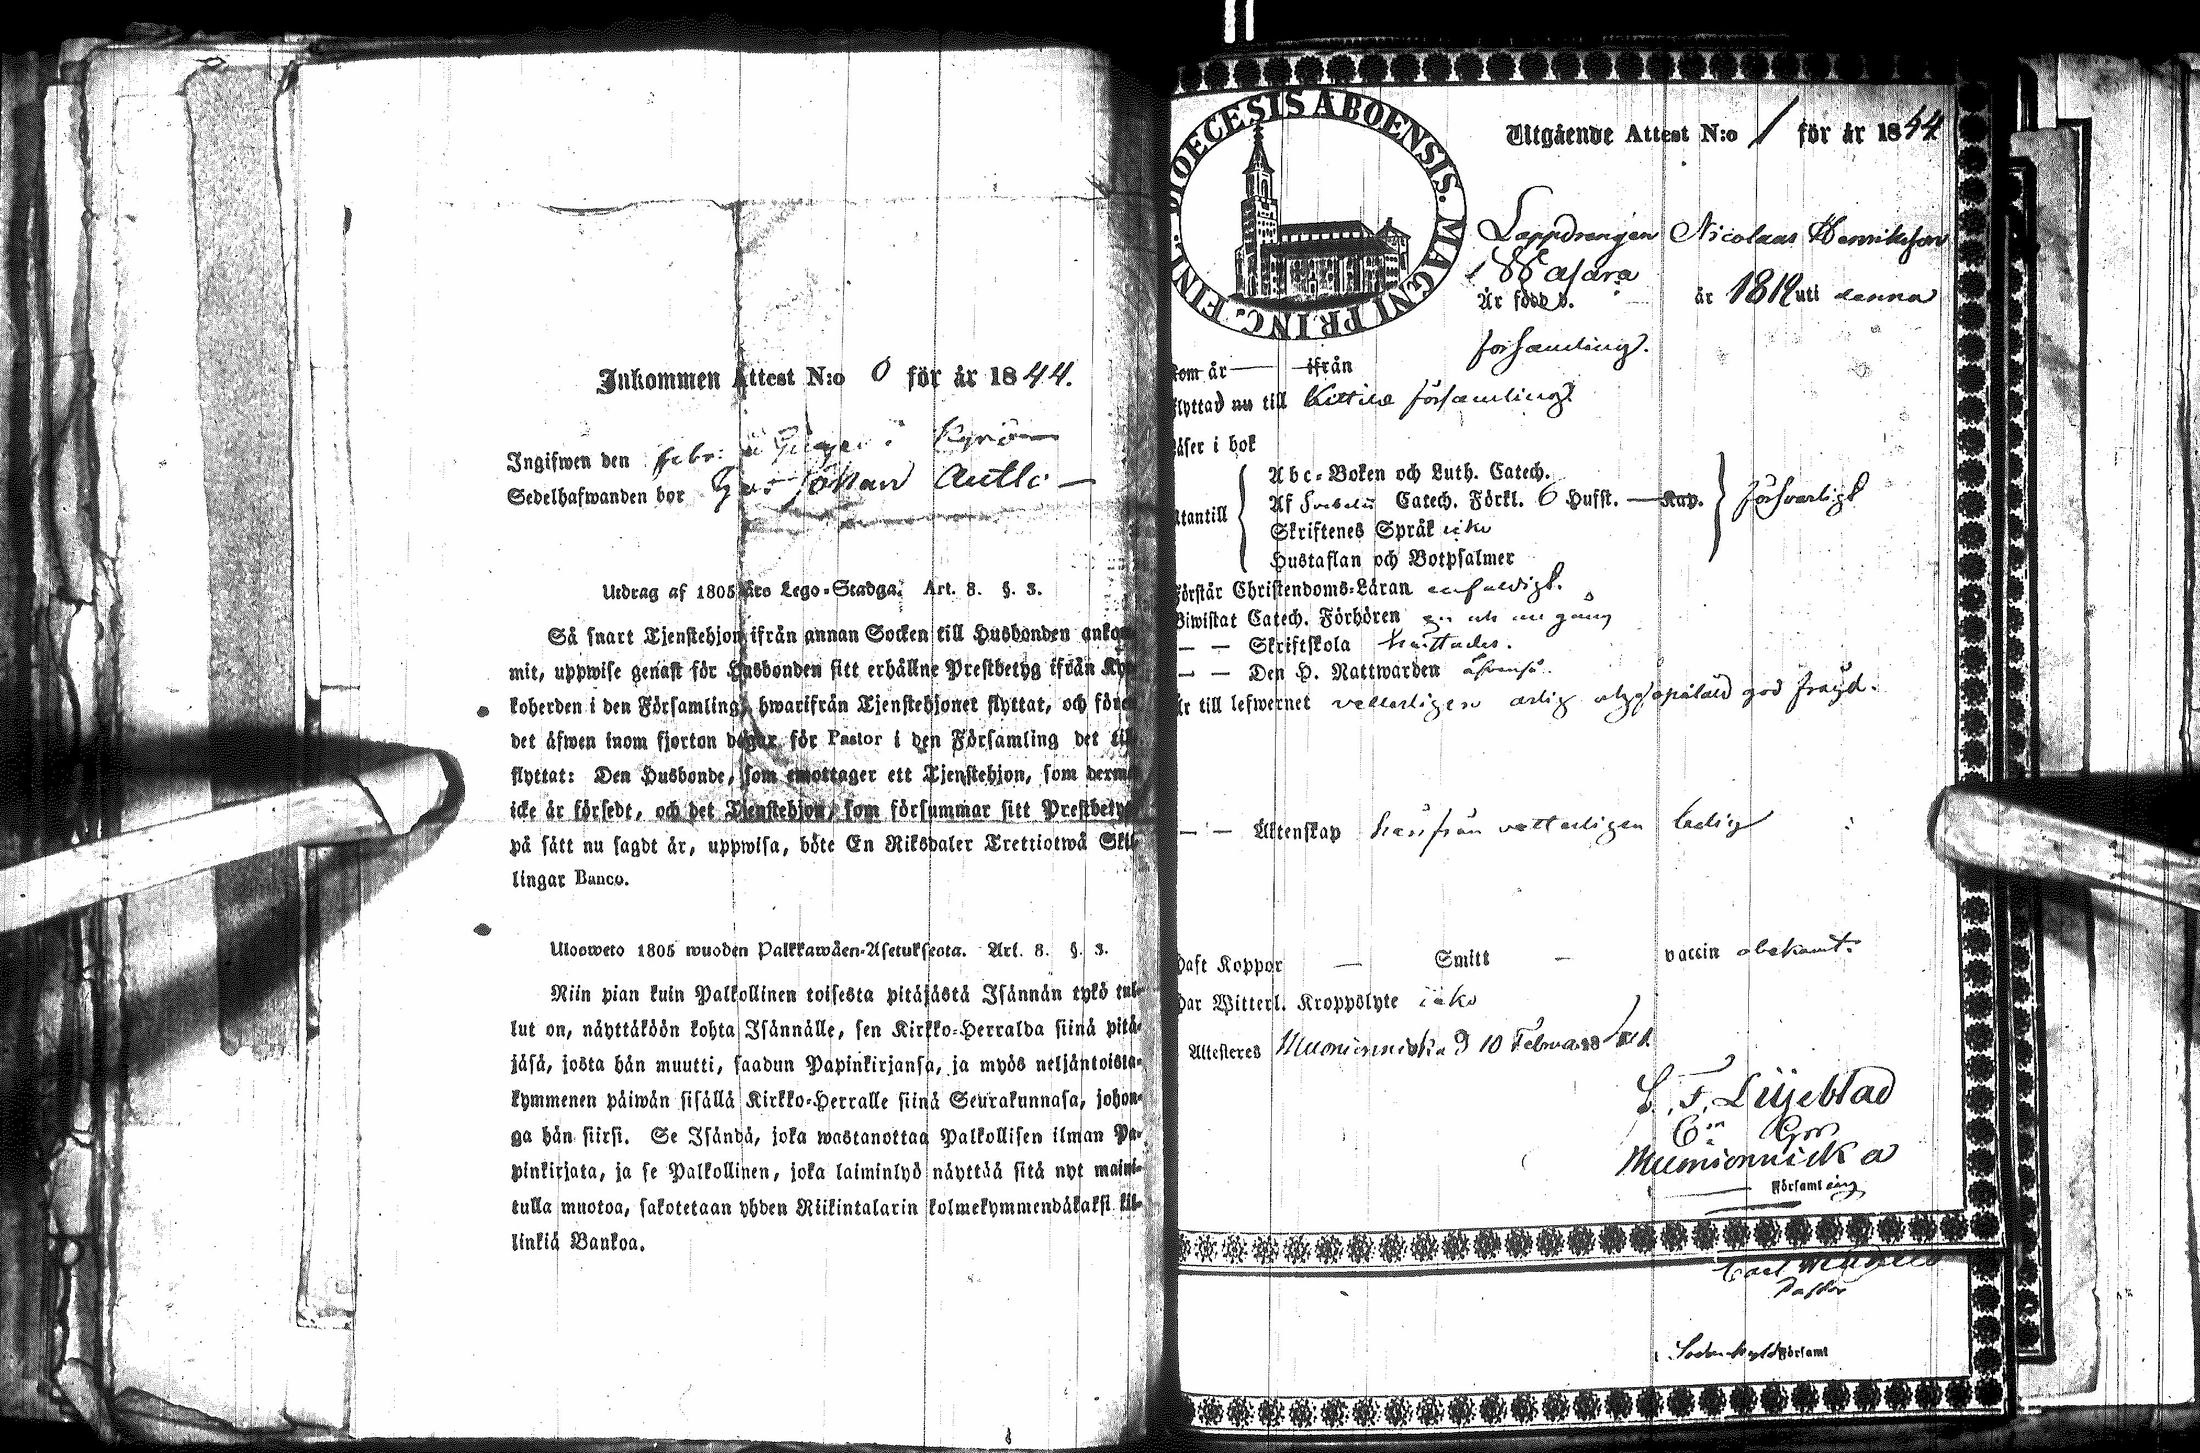 Inkommen Attest N:o 0 för år 1844.
Ingifwen den febr: i Kyrö
Sedelhafwanden bor Johan Autti
Utdrag af 1805 års Lego-Stadga. Art. 8. §. 3.
Så snart Tjenstehjon ifrån annan Socken till Husbonden ankom-
mit, uppwise genast för Husbonden sitt erhållne Prestbetyg ifrån Kyr-
koherden i den Församling, hwarifrån Tjenstehjonet flyttat, och före
det äfwen inom fjorton dagar för Pastor i den Församling det till
flyttat: Den Husbonde, som emottager ett Tjenstehjon, som dermed
icke är försedt, och det Tjenstehjon, som försummar sitt Prestbetyg
på sätt nu sagdt är, uppwisa, böte En Riksdaler Trettiotwå Skil-
lingar Banco.
Ulosweto 1805 wuoden Palkkawäen-Asetuksesta. Art. 8. §. 3.
Niin pian kuin Palkollinen toisesta pitäjästä Isännän tykö tul-
lut on, näyttäköön kohta Isännälle, sen Kirkko-Herralda siinä pitä-
jäsä, josta hän muutti, saadun Papinkirjansa, ja myös neljäntoista-
kymmenen päiwän sisällä Kirkko-Herralle siinä Seurakunnasa, johon-
ga hän siirsi. Se Isändä, joka wastanottaa Palkollisen ilman Pa-
pinkirjata, ja se Palkollinen, joka laiminlyö näyttää sitä nyt maini-
tulla muotoa, sakotetaan yhden Riikintalarin kolmekymmendäkaksi kil-
linkiä Bankoa.
DIOECESIS ABOENSIS. MAGNI PRINC. FINL.
Utgående Attest N:o 1 för år 1844
Lappdrengen Nicolaus Henriksson
Wasara
Är född d. år 1819 uti denna
församling.
kom år — ifrån
flyttad nu till Kittilä församling
Läser i bok
Utantill
Abc-Boken och Luth. Catech.
Af Svebelii Catech. Förkl. 6 Hufst. — Kap.
försvarligt
Skriftenes Språk icke
Hustaflan och Botpsalmer
Förstår Christendoms-Läran enfaldigt.
Biwistat Catech. Förhören en och en gång
— — Skriftskola
— — Den H. Nattwarden
Är till lefwernet vetterligen ärlig god frägd.
— — Äktenskap härifrån vetterligen ledig
Haft Koppor — Smitt — vaccin obekant.
Har Witterl. Kroppslyte icke
Attesteres Muonionniska d 10 Februari 18
L. F. Liljeblad
Muonionniska
Församling
Carl
Pastor
i Sodankylä Församl